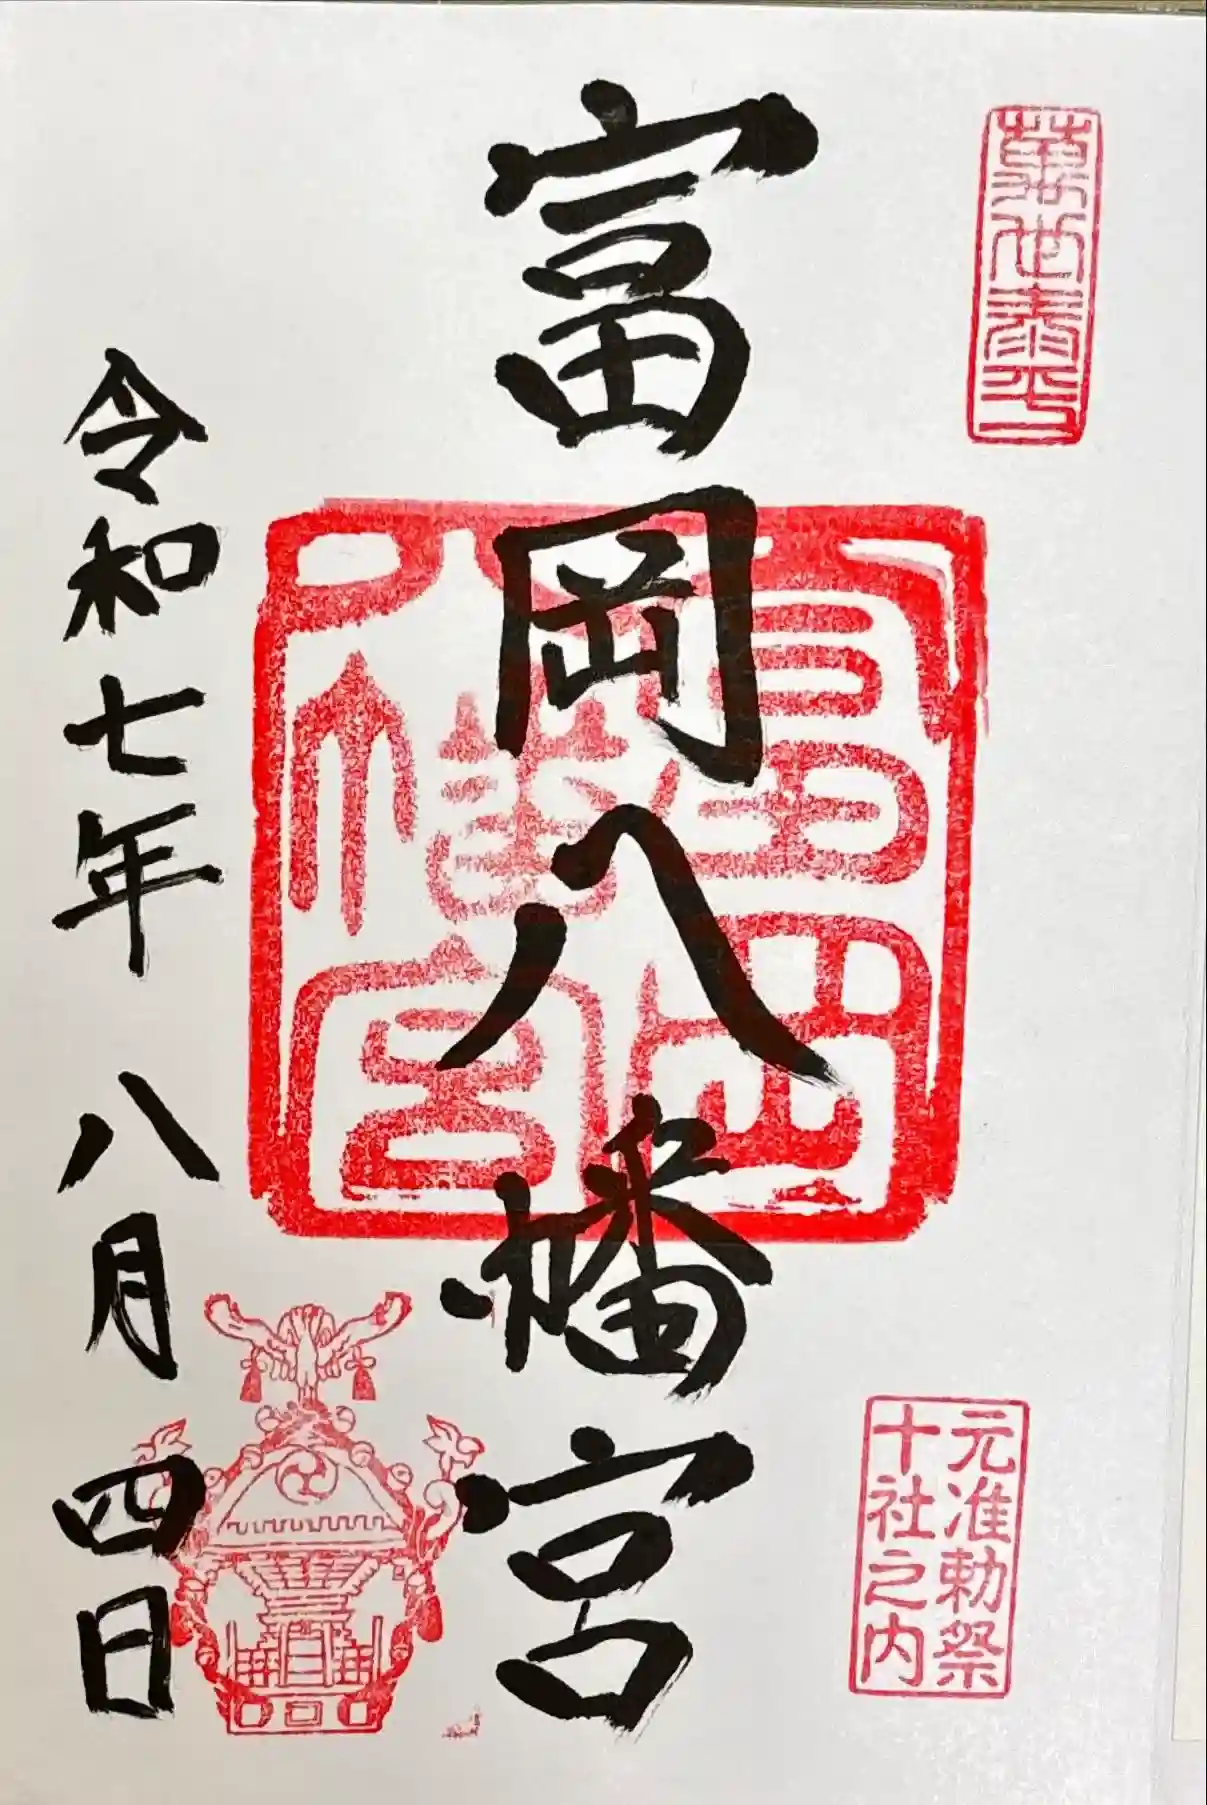 萬世泰平
富岡八幡宮
富岡八幡宮
元准勅祭
十社之内
令和七年八月四日